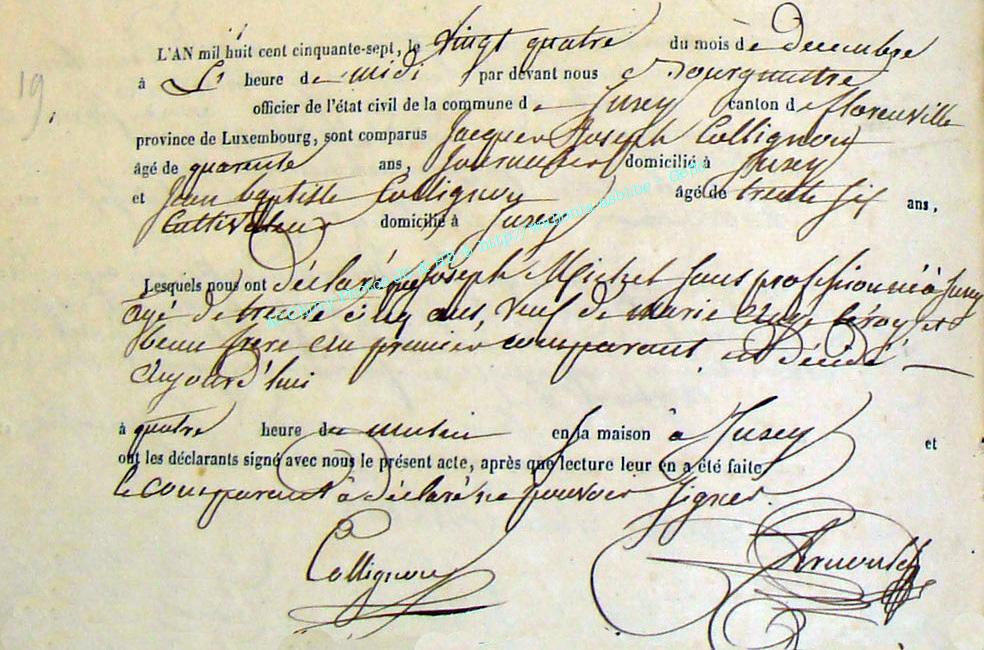 19
L'AN mil huit cent cinquante-sept, le vingt quatre du mois de decembre
à heure de midi par devant nous Bourgmestre
officier de l'état civil de la commune de Jusey canton de florenville
province de Luxembourg, sont comparus Jacques Joseph Collignon
âgé de quarente ans, Journalier domicilié à Jusey
et Jean baptiste Collignon âgé de trente six ans,
Cultivateur domicilié à Jusey
Lesquels nous ont déclaré que Joseph Michel sans profession né à Jusey
agé de trente cinq ans, veuf de Marie et
beau frère du premier comparant, est décédé
aujourd'hui
à quatre heure du matin en sa maison à Jusey et
ont les déclarants signé avec nous le présent acte, après que lecture leur en a été faite
le comparant à déclaré ne pouvoir signer.
Collignon